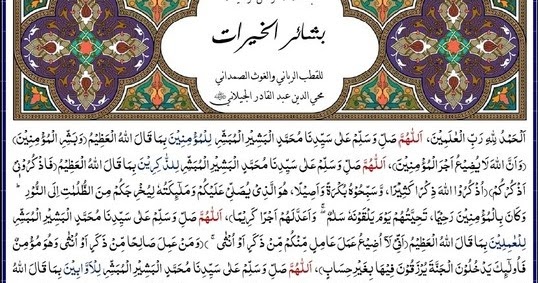 بشائر الخيرات
للقطب الرباني والغوث الصمداني
محي الدين عبد القادر الجيلاني
اَلْحَمْدُ لِلّٰهِ رَبِّ الْعٰلَمِيْنَ، اَللّٰهُمَّ صَلِّ وَسَلِّمْ عَلٰى سَيِّدِنَا مُحَمَّدٍ الْبَشِيْرِ الْمُبَشِّرِ لِلْمُؤْمِنِيْنَ بِمَا قَالَ اللهُ الْعَظِيْمُ (وَبَشِّرِ الْمُؤْمِنِيْنَ)
(وَاَنَّ اللهَ لَا يُضِيْعُ اَجْرَ الْمُؤْمِنِيْنَ)، اَللّٰهُمَّ صَلِّ وَسَلِّمْ عَلٰى سَيِّدِنَا مُحَمَّدٍ الْبَشِيْرِ الْمُبَشِّرِ لِلذَّاكِرِيْنَ بِمَا قَالَ اللهُ الْعَظِيْمُ (فَاذْكُرُوْنِيْ
اَذْكُرْكُمْ) (اُذْكُرُوا اللهَ ذِكْرًا كَثِيْرًا، وَسَبِّحُوْهُ بُكْرَةً وَاَصِيْلًا، هُوَ الَّذِيْ يُصَلِّيْ عَلَيْكُمْ وَمَلٰٓئِكَتُهٗ لِيُخْرِجَكُمْ مِنَ الظُّلُمٰتِ اِلَى النُّوْرِ ط
وَكَانَ بِالْمُؤْمِنِيْنَ رَحِيْمًا، تَحِيَّتُهُمْ يَوْمَ يَلْقَوْنَهٗ سَلٰمٌ وَاَعَدَّ لَهُمْ اَجْرًا كَرِيْمًا)، اَللّٰهُمَّ صَلِّ وَسَلِّمْ عَلٰى سَيِّدِنَا مُحَمَّدٍ الْبَشِيْرِ الْمُبَشِّرِ
لِلْعٰمِلِيْنَ بِمَا قَالَ اللهُ الْعَظِيْمُ (اَنِّيْ لَا اُضِيْعُ عَمَلَ عَامِلٍ مِّنْكُمْ مِّنْ ذَكَرٍ اَوْ اُنْثٰى) (وَمَنْ عَمِلَ صَالِحًا مِّنْ ذَكَرٍ اَوْ اُنْثٰى وَهُوَ مُؤْمِنٌ
فَاُولٰٓئِكَ يَدْخُلُوْنَ الْجَنَّةَ يُرْزَقُوْنَ فِيْهَا بِغَيْرِ حِسَابٍ)، اَللّٰهُمَّ صَلِّ وَسَلِّمْ عَلٰى سَيِّدِنَا مُحَمَّدٍ الْبَشِيْرِ الْمُبَشِّرِ لِلْاَوَّابِيْنَ بِمَا قَالَ اللهُ